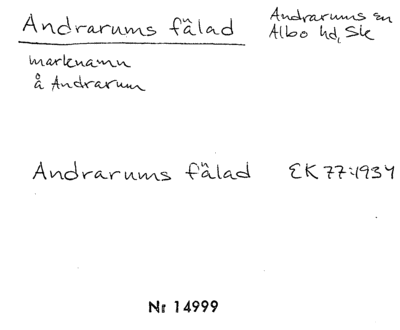 Andrarums fälad
Andrarums sn
Albo hd, Sk
marknamn
å Andrarum
Andrarums fälad EK 77:1934
Nr 14999